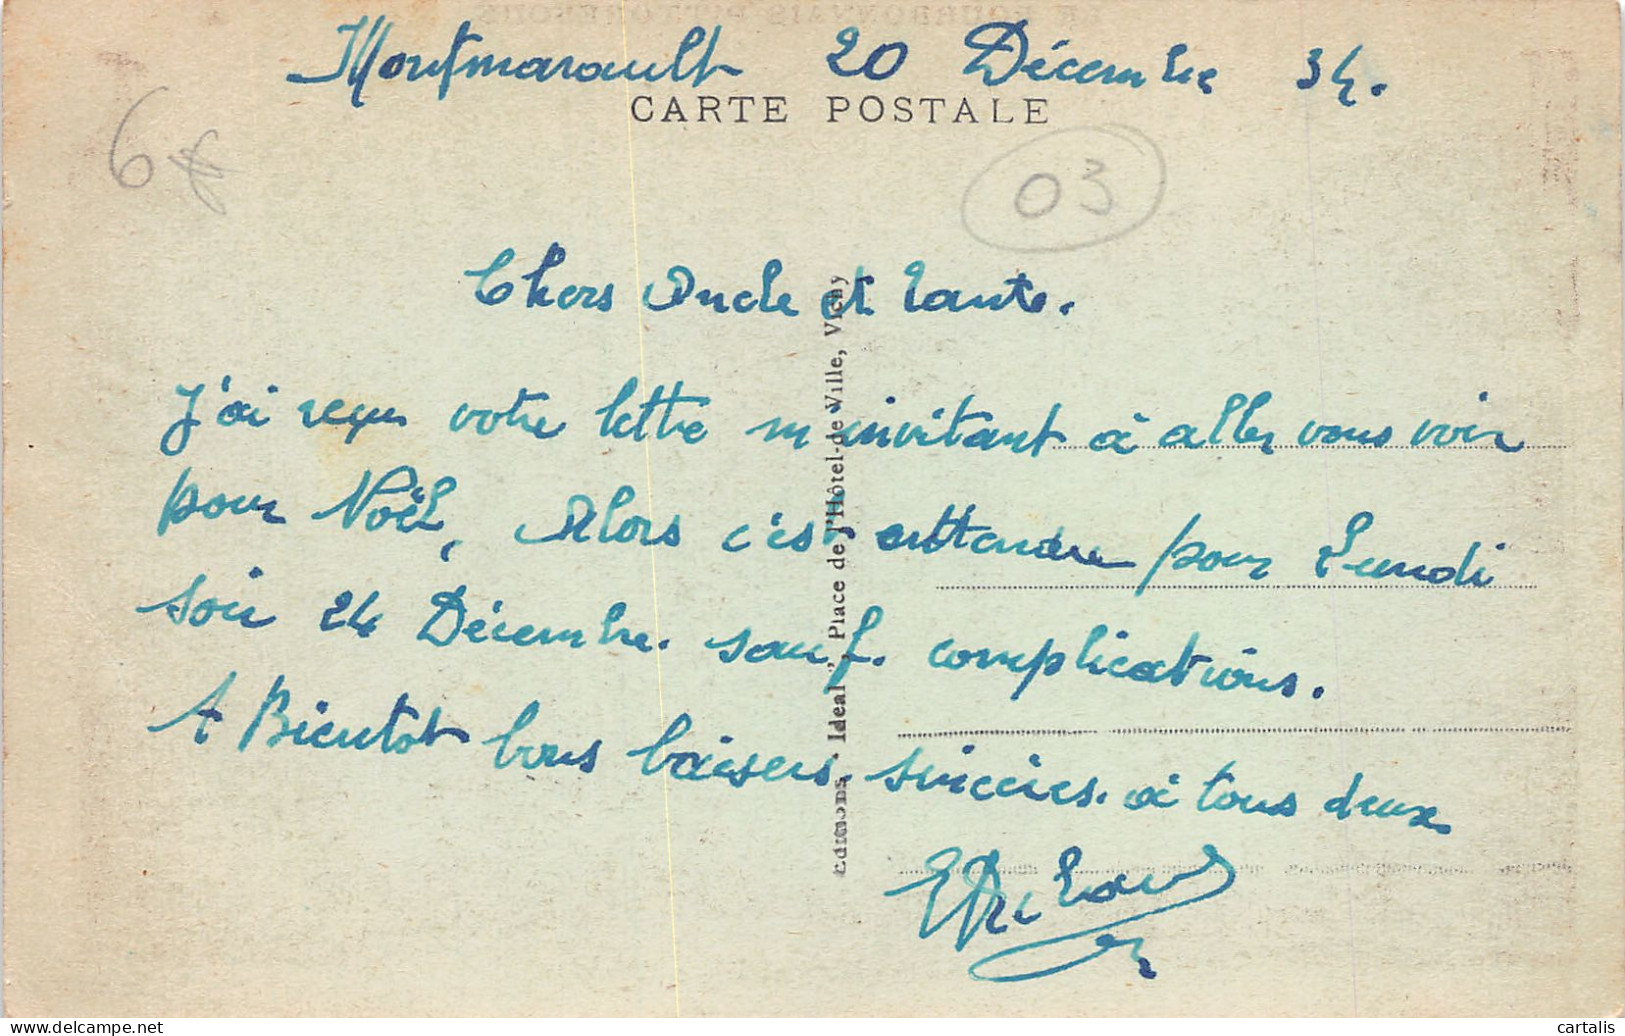 LE BOURBONNAIS PITTORESQUE
Montmarault 20 Décembre 34.
CARTE POSTALE
6€
03
Chers Oncle et Tante.
J'ai reçu votre lettre m'invitant à aller vous voir
pour Noël, Alors c'est entendu pour Lundi
soir 24 Décembre. sauf. complications.
A Bientôt bons baisers. sincères. à tous deux
Editions "Ideal", Place de l'Hôtel-de-Ville, Vichy
cartalis
delcampe.net